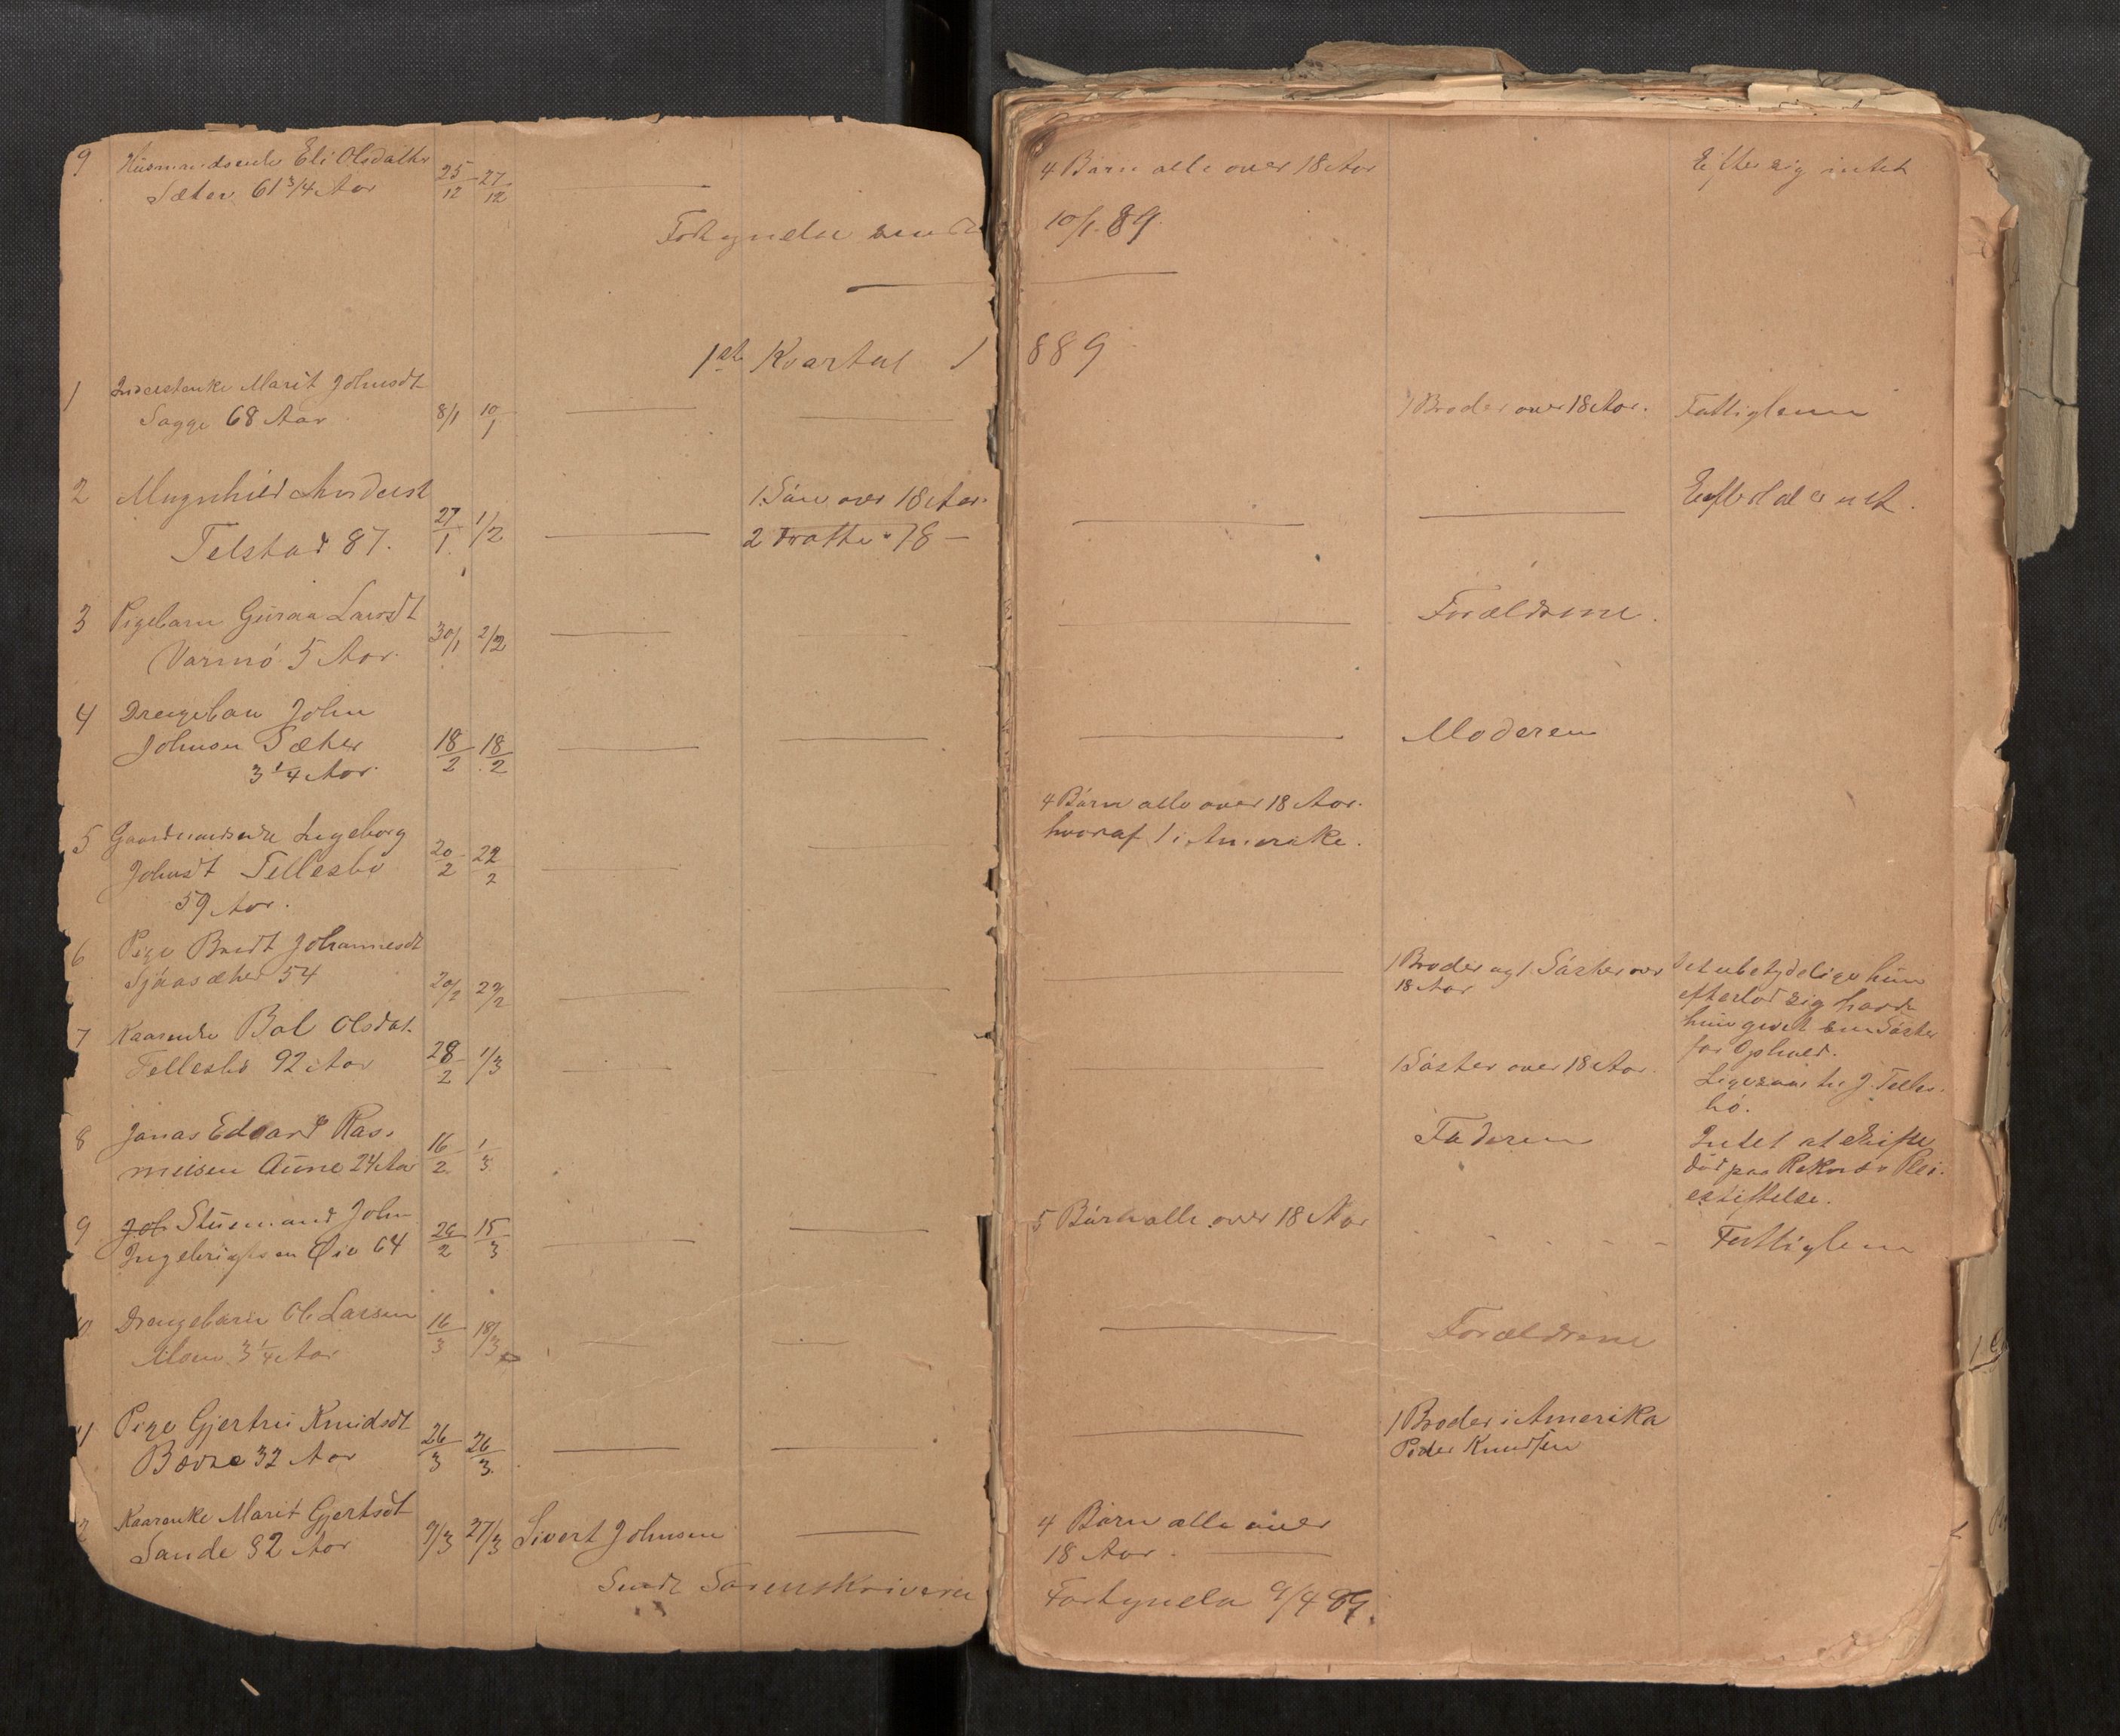 9 Husmandsenke Eli Olsdatter 25/12 27/12 — 4 Børn alle over 18 Aar Efter sig intet
Sæter 61 3/4 Aar
Fortegnelse sendt 10/1 89.
1ste Kvartal 1889
1 Inderstenke Marit Johnsdt — 1 Broder over 18 Aar. Fattiglem
Sagge 68 Aar 8/1 10/1
2 Magnhild Andersd 1 Søn over 18 Aar. Efterlod er intet.
Telstad 87. 27/1. 1/2 — 2 Døttre " 18 —
3 Pigebarn Guraa Larsdt Forældrene.
Varmø 5 Aar. 30/1 2/2
4 Drengebarn John
Johnsen Sæter 18/2 18/2 — Moderen
3 1/4 Aar.
5 Gaardmandsenke Ingeborg 20/2 22/2 4 Børn alle over 18 Aar.
Johnsdt Tellesbø hvoraf 1 i Amerika.
59 Aar.
6 Pige Beret Johannesdt 1 Broder og 1 Søster over Det ubetydelige hun
Sjøasæter 54 20/2 22/2 18 Aar efterlod sig havde
hun givet sin Søster
for Ophold.
7 Kaarenke Bol Olsdat.
Tellesbø 92 Aar 28/2 1/3 1 Søster over 18 Aar. Ligesaa til J. Telles-
bø.
8 Jonas Edvard Ras- 16/2 1/3 Faderen Intet at skifte
musen Aune 24 Aar død paa Reknæs Plei-
estiftelse.
9 Joh Stuemand John 24/2 15/3 5 Børn alle over 18 Aar
Ingebrigtsen Øie 64 Fattiglem
10 Drengebarn Ole Larsen 16/3 18/3 Forældrene
Moen 3 1/4 Aar
11 Pige Gjertru Knudsdt 26/3 26/3. 1 Broder i Amerika
Bøvre 32 Aar Peder Knudsen
12 Kaarenke Marit Gjertsdt 4 Børn alle over
Sande 82 Aar 9/3 27/3 Sivert Johnsen — 18 Aar. —
Sendt Sorenskriveren Fortegnelse 9/4 89.